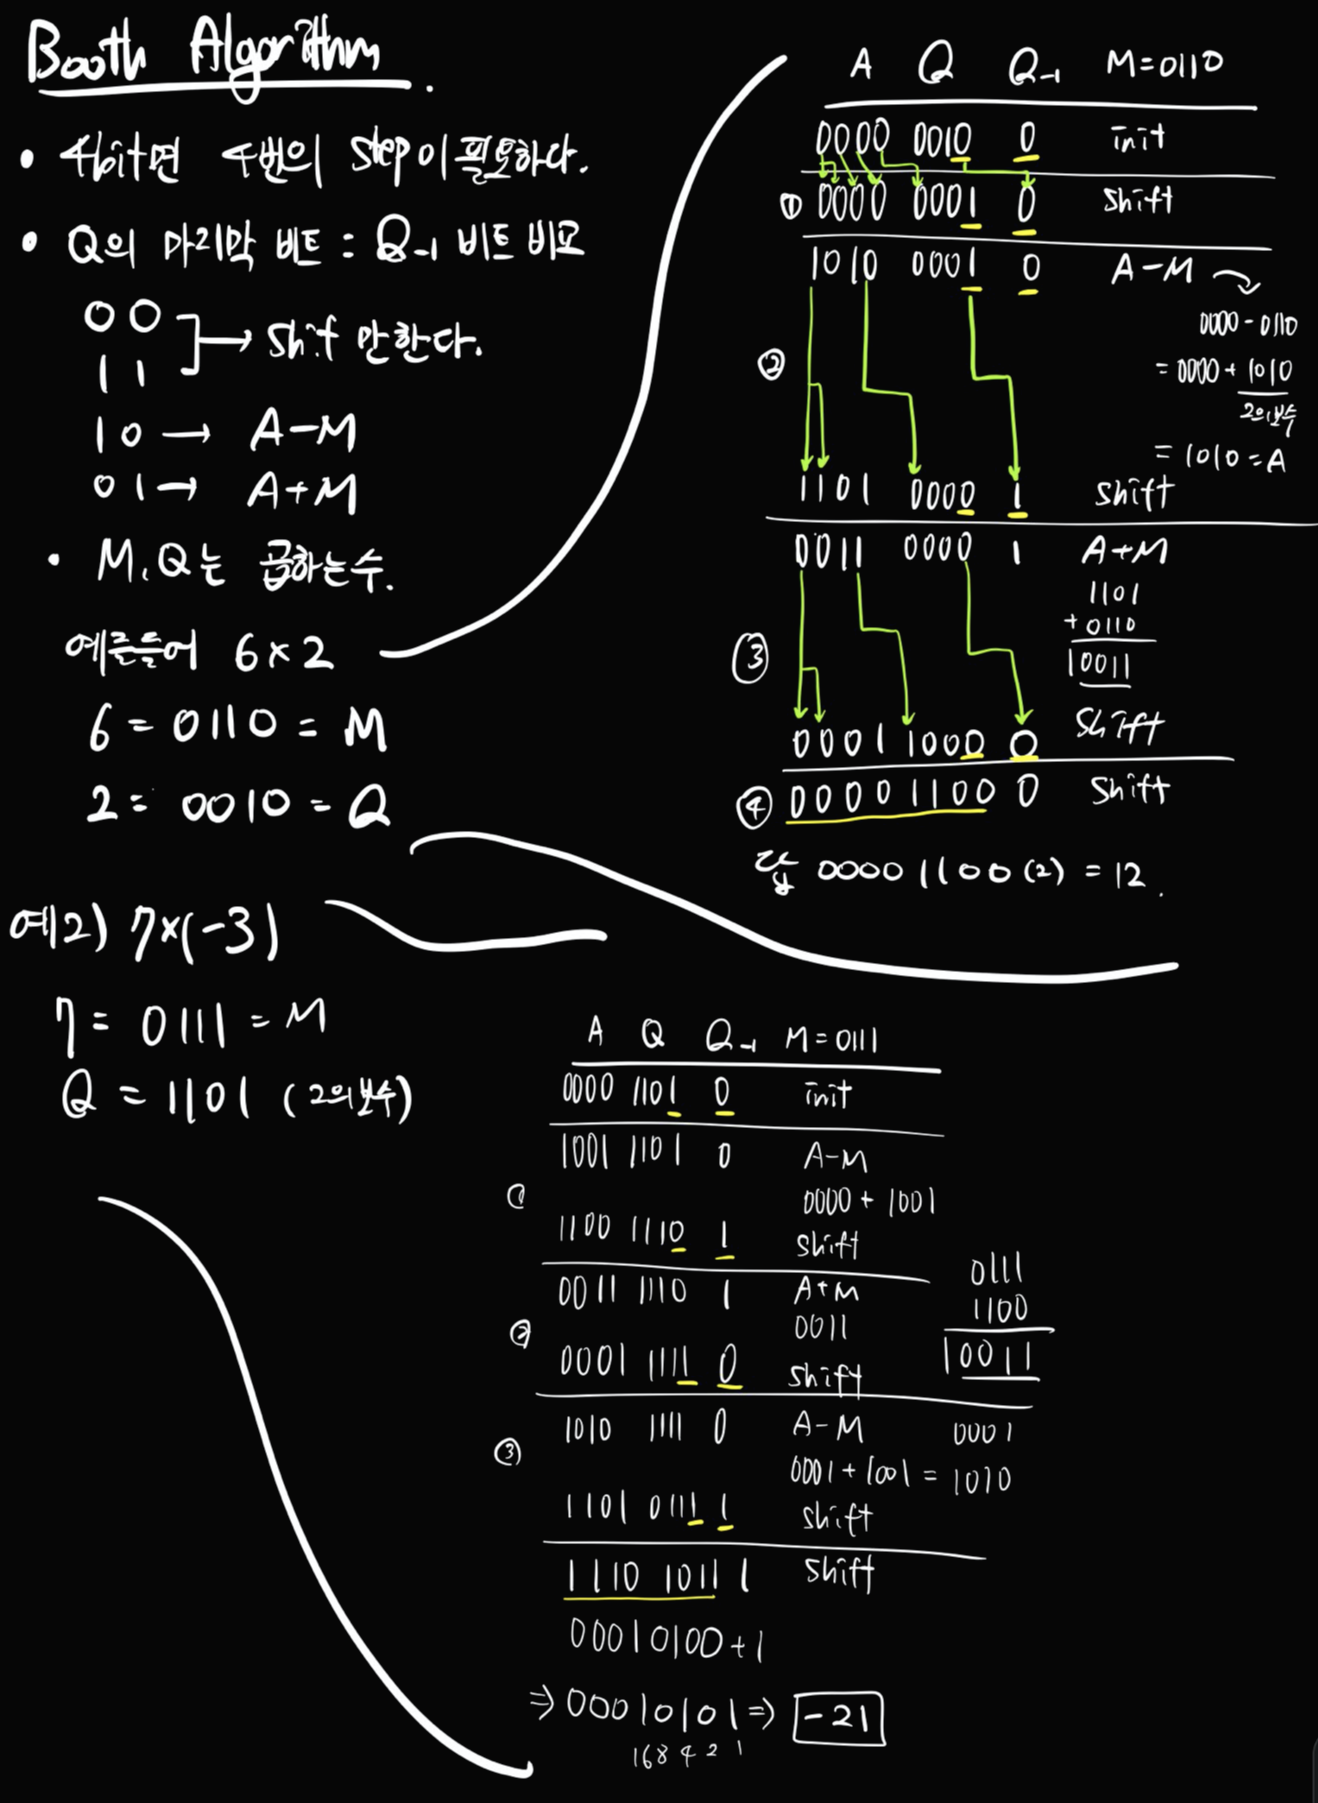 Booth Algorithm.
• 4bit면 4번의 step이 필요하다.
• Q의 마지막 비트 : Q-1 비트 비교
00
11 → Shif 만한다.
10 → A-M
01 → A+M
• M, Q는 곱하는수.
예를들어 6×2
6 = 0110 = M
2 = 0010 = Q
A Q Q-1 M=0110
0000 0010 0 init
① 0000 0001 0 Shift
1010 0001 0 A-M
0000-0110
② = 0000+1010
2의보수
= 1010=A
1101 0000 1 Shift
0011 0000 1 A+M
1101
+0110
③ 10011
Shift
0001 1000 0
④ 0000 1100 0 Shift
답 0000 1100(2) = 12.
예2) 7×(-3)
7 = 0111 = M
Q = 1101 (2의보수)
A Q Q-1 M=0111
0000 1101 0 init
1001 1101 0 A-M
① 0000 + 1001
1100 1110 1 Shift
0011 1110 1 A+M
② 0011
0001 1111 0 Shift
0111
1100
10011
1010 1111 0 A-M 0001
③ 0001+1001 = 1010
1101 0111 1 Shift
1110 1011 1 Shift
00010100+1
⇒ 00010101 ⇒ -21
16 8 4 2 1